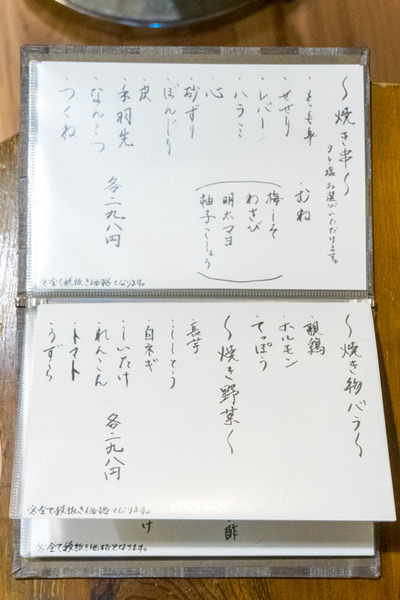 〜焼き串〜
タレ塩お選びいただけます。
・もも串
・むね
梅しそ
わさび
明太マヨ
柚子こしょう
・せせり
・レバー
・ハラミ
・心
・砂ずり
・ぼんじり
・皮
・手羽先
・なんこつ
・つくね
各二九八円
※全て税抜き価格となります。
〜焼き物バラ〜
・親鶏
・ホルモン
・てっぽう
〜焼き野菜〜
・長芋
・ししとう
・白ネギ
・しいたけ
・れんこん
・トマト
・うずら
各二九八円
※全て税抜き価格となります。
酢
け
※全て税抜き価格となります。